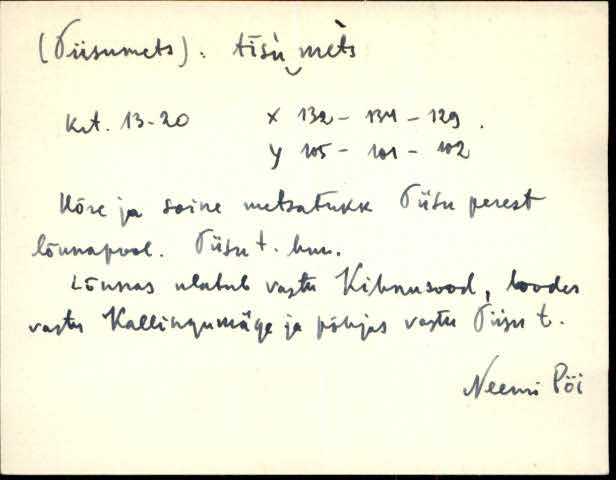 (Tiisumets). tīsù mè̮ts
Krt. 13-20 X 132 - 134 - 129.
Y 105 - 101 - 102
Hõre ja soine metsatukk Tiisu perest
lõunapool. Tiisu t. hm.
Lõunas ulatub vastu Kihnusood, loodes
vastu Kallingumäge ja põhjas vastu Tiisu t.
Neemi Pöi